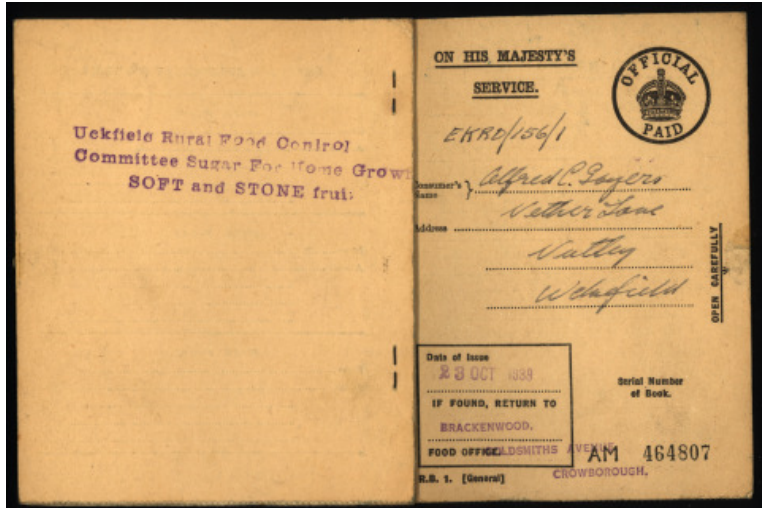 Uckfield Rural Food Control
Committee Sugar For Home Grow
SOFT and STONE fruit
ON HIS MAJESTY'S
SERVICE.
OFFICIAL
PAID
EKRD/156/1
Consumer's Name } Alfred C.
Address Nether Lane
Nutley
Uckfield
OPEN CAREFULLY
Date of Issue
23 OCT 1939
IF FOUND, RETURN TO
BRACKENWOOD.
FOOD OFFICE.
GOLDSMITHS AVENUE
CROWBOROUGH.
Serial Number
of Book.
AM 464807
R.B. 1. [General]